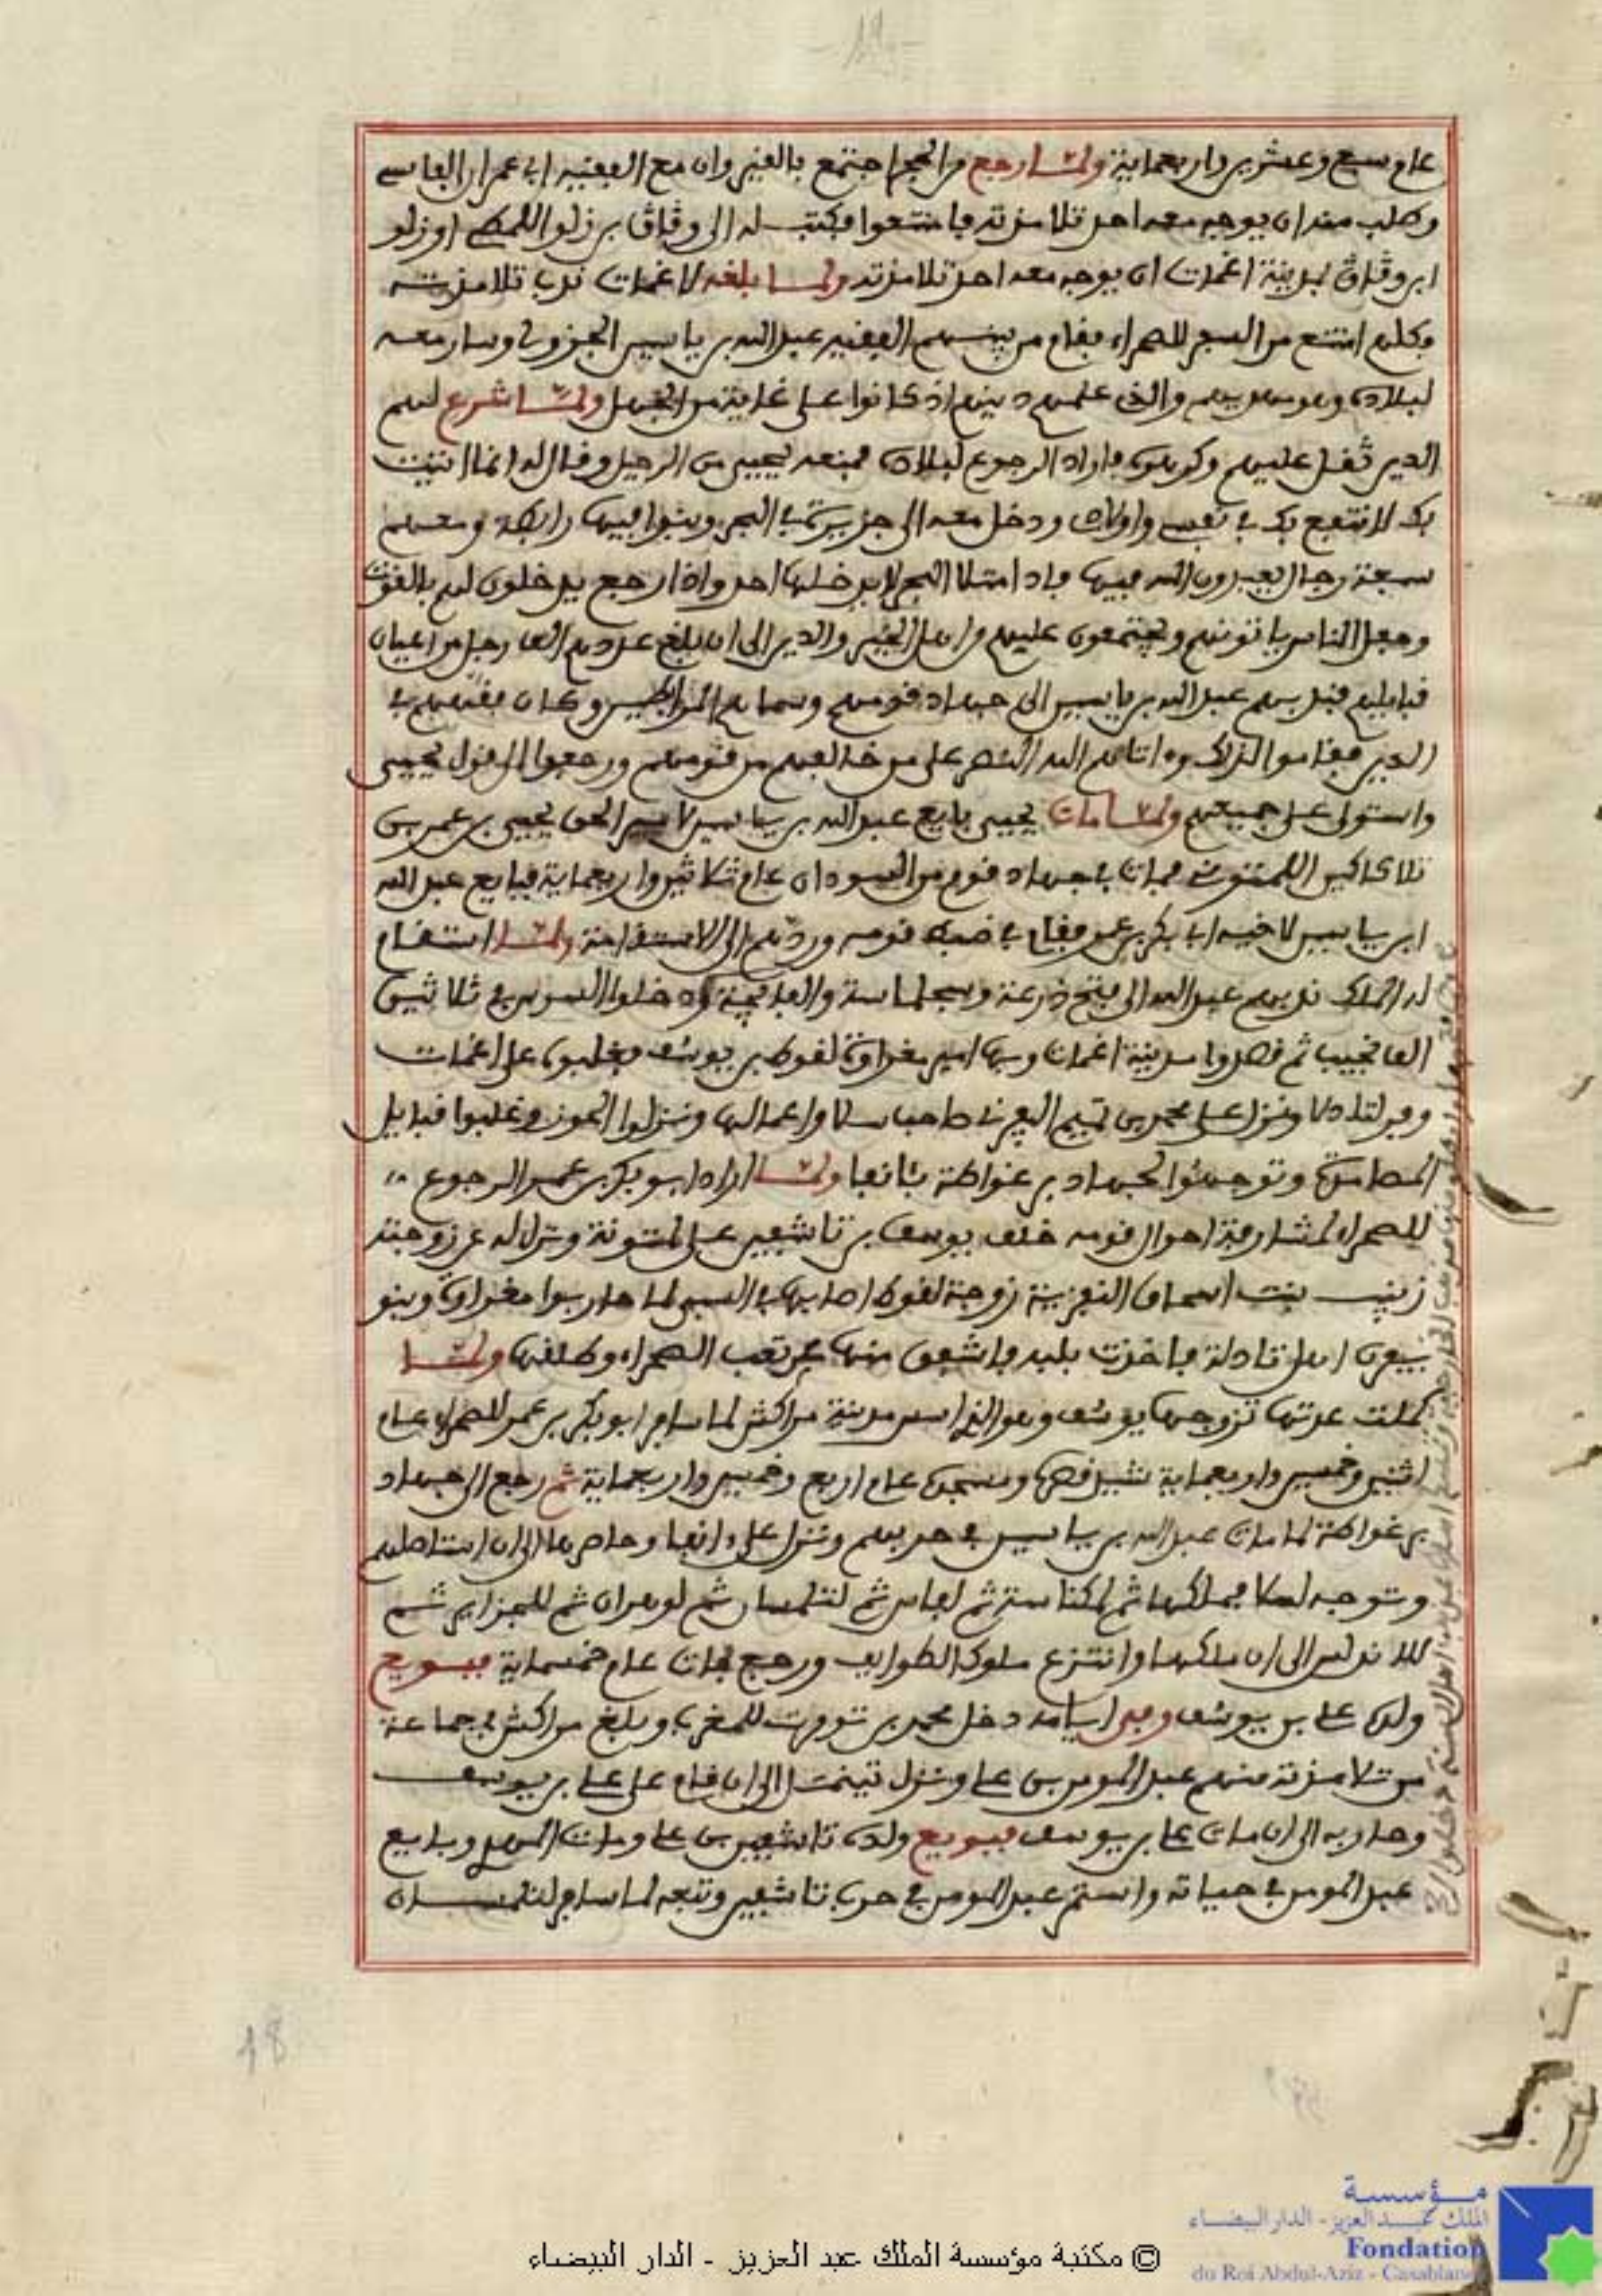 عام سبع وعشرين واربعماية ولما رجع من الحج اجتمع بالقيروان مع الفقيه ابي عمران الفاسي
وطلب منه ان يوجه معه احد تلامذته فامتنعوا فكتب له الى وڭاڭ بن زلو اللمطي او زلو
ابن وڭاڭ بمدينة اغمات ان يوجه معه احد تلامذته ولما بلغه لاغمات ندب تلامذته
وكلهم امتنع من السفر للصحراء فقام من بينهم الفقيه عبد الله بن ياسين الجزولي وسار معه
لبلاده وهو مهديهم والذي علمهم دينهم اذ كانوا على غاية من الجهل ولما شرع لهم
الدين ثقل عليهم وكرهوه فاراد الرجوع لبلاده فمنعه يحيى من الرحيل وقال له انما اتيت
بك لانتفع بك في نفسي واولادي ودخل معه الى جزيرة في البحر وبنوا فيها رابطة ومعهم
سبعة رجال يعبدون الله فيها فاذا امتلا البحر لا يدخلها احد واذا رجع يدخلون لهم بالقوت
وجعل الناس ياتونهم ويجتمعون عليهم من اهل الخير والدين الى ان بلغ عددهم الف رجل من اعيان
قبايلهم فندبهم عبد الله بن ياسين الى جهاد قومهم وسماهم المرابطين وكان مقدمهم في
الدين فقاموا لذلك وءاتاهم الله النصر على من خالفهم من قومهم ورجعوا الى قول يحيى
واستولى على جميعهم ولما مات يحيى بايع عبد الله بن ياسين لامير الحق يحيى بن عمر بن
تلاكاكين اللمتوني فمات في جهاد قوم من السودان عام ثلاثين واربعماية فبايع عبد الله
ابن ياسين لاخيه ابي بكر بن عمر فقام في ضبط قومه وردهم الى الاستقامة ولما استقام
له الملك ندبهم عبد الله الى فتح درعة وسجلماسة والفايجة ودخلوا السوس في ثلاثين
الف نجيب ثم قصدوا مدينة اغمات وبها امير مغراوة لقوط بن يوسف فغلبوه على اغمات
وفر لتادلا ونزل على محمد بن تميم اليفرني صاحب سلا واعمالها ونزلوا الحوز وغلبوا قبايل
المصامدة وتوجهوا لجهاد برغواطة بئانفا ولما اراد ابو بكر بن عمر الرجوع
للصحراء لمشارفة احوال قومه خلف يوسف بن تاشفين على لمتونة وتنازل له عن زوجته
زينب بنت اسحاق النفزية زوجة لقوط اصابها في السبي لما حاربوا مغراوة وبنو
يفرن اهل تادلة فاخذت بلبه فاشفق منها عن تعب الصحراء وطلقها ولما
كملت عدتها تزوجها يوسف وهو الذي اسس مدينة مراكش لما سافر ابو بكر بن عمر للصحراء عام
اثنين وخمسين واربعماية شيد قصرها ومسجدها عام اربع وخمسين واربعماية ثم رجع الى جهاد
برغواطة لما مات عبد الله بن ياسين في حربهم ونزل على ءانفا وحاصرها الى ان استاصلهم
وتوجه لسلا فملكها ثم لمكناسة ثم لفاس ثم لتلمسان ثم لوهران ثم للجزاير ثم
للاندلس الى ان ملكها وانتزع ملوك الطوايف ورجع فمات عام خمسماية فبويع
ولده علي بن يوسف وفي ايامه دخل محمد بن تومرت للمغرب وبلغ مراكش في جماعة
من تلامذته منهم عبد المومن بن علي ونزل تينمل الى ان قام على علي بن يوسف
وحاربه الى ان مات علي بن يوسف فبويع ولده تاشفين بن علي ومات المهدي وبايع
عبد المومن في حياته واستمر عبد المومن في حرب تاشفين وتبعه لما سافر لتلمسان
18
© مكتبة مؤسسة الملك عبد العزيز - الدار البيضاء
مؤسسة
الملك عبد العزيز - الدار البيضاء
Fondation
du Roi Abdul-Aziz - Casablanca